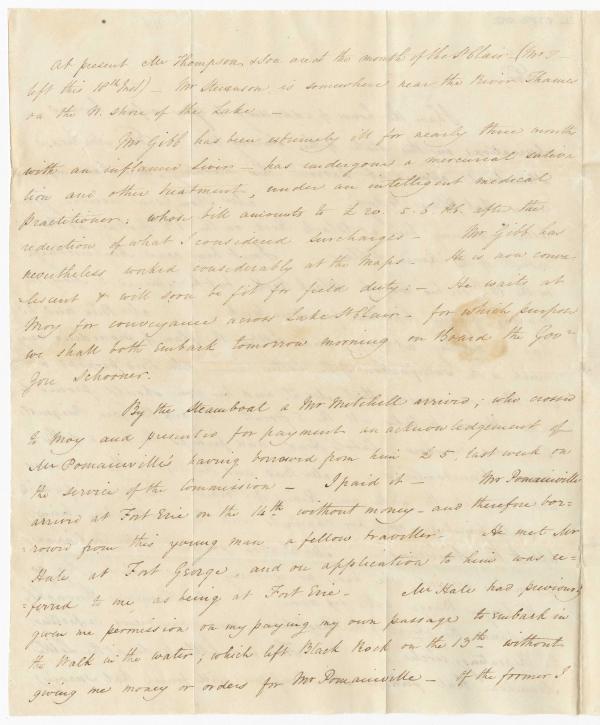 At present Mr Thompson & Son are at the mouth of the St Clair – (Mr T
left this 18th Inst) – Mr Stevenson is somewhere near the River Thames
on the N. shore of the Lake –
Mr Gibb has been extremely ill for nearly three months
with an inflamed Liver – has undergone a mercurial saliva-
tion and other treatment, under an intelligent medical
Practitioner; whose bill amounts to £20. 5. 6. after the
reduction of what I considered surcharges – Mr Gibb has
nonetheless worked considerably at the Maps – He is now conva-
lescent & will soon be fit for field duty: – He waits at
Moy for conveyance across Lake St Clair – for which purpose
we shall both embark tomorrow morning on Board the Gor-
Gou Schooner.
By the Steamboat a Mr Mitchell arrived; who crossed
to Moy and presented for payment an acknowledgement of
Mr Pomainville's having borrowed from him £5, last week on
the service of the Commission – I paid it – Mr Pomainville
arrived at Fort Erie on the 14th without money – and therefore bor-
rowed from this young man a fellow traveller – He met Mr
Hale at Fort George, and on application to him was re-
ferred to me, as being at Fort Erie – Mr Hale had previously
given me permission on my paying my own passage to embark in
the Walk in the water; which left Black Rock on the 13th without
giving me money or orders for Mr Pomainville – of the former I